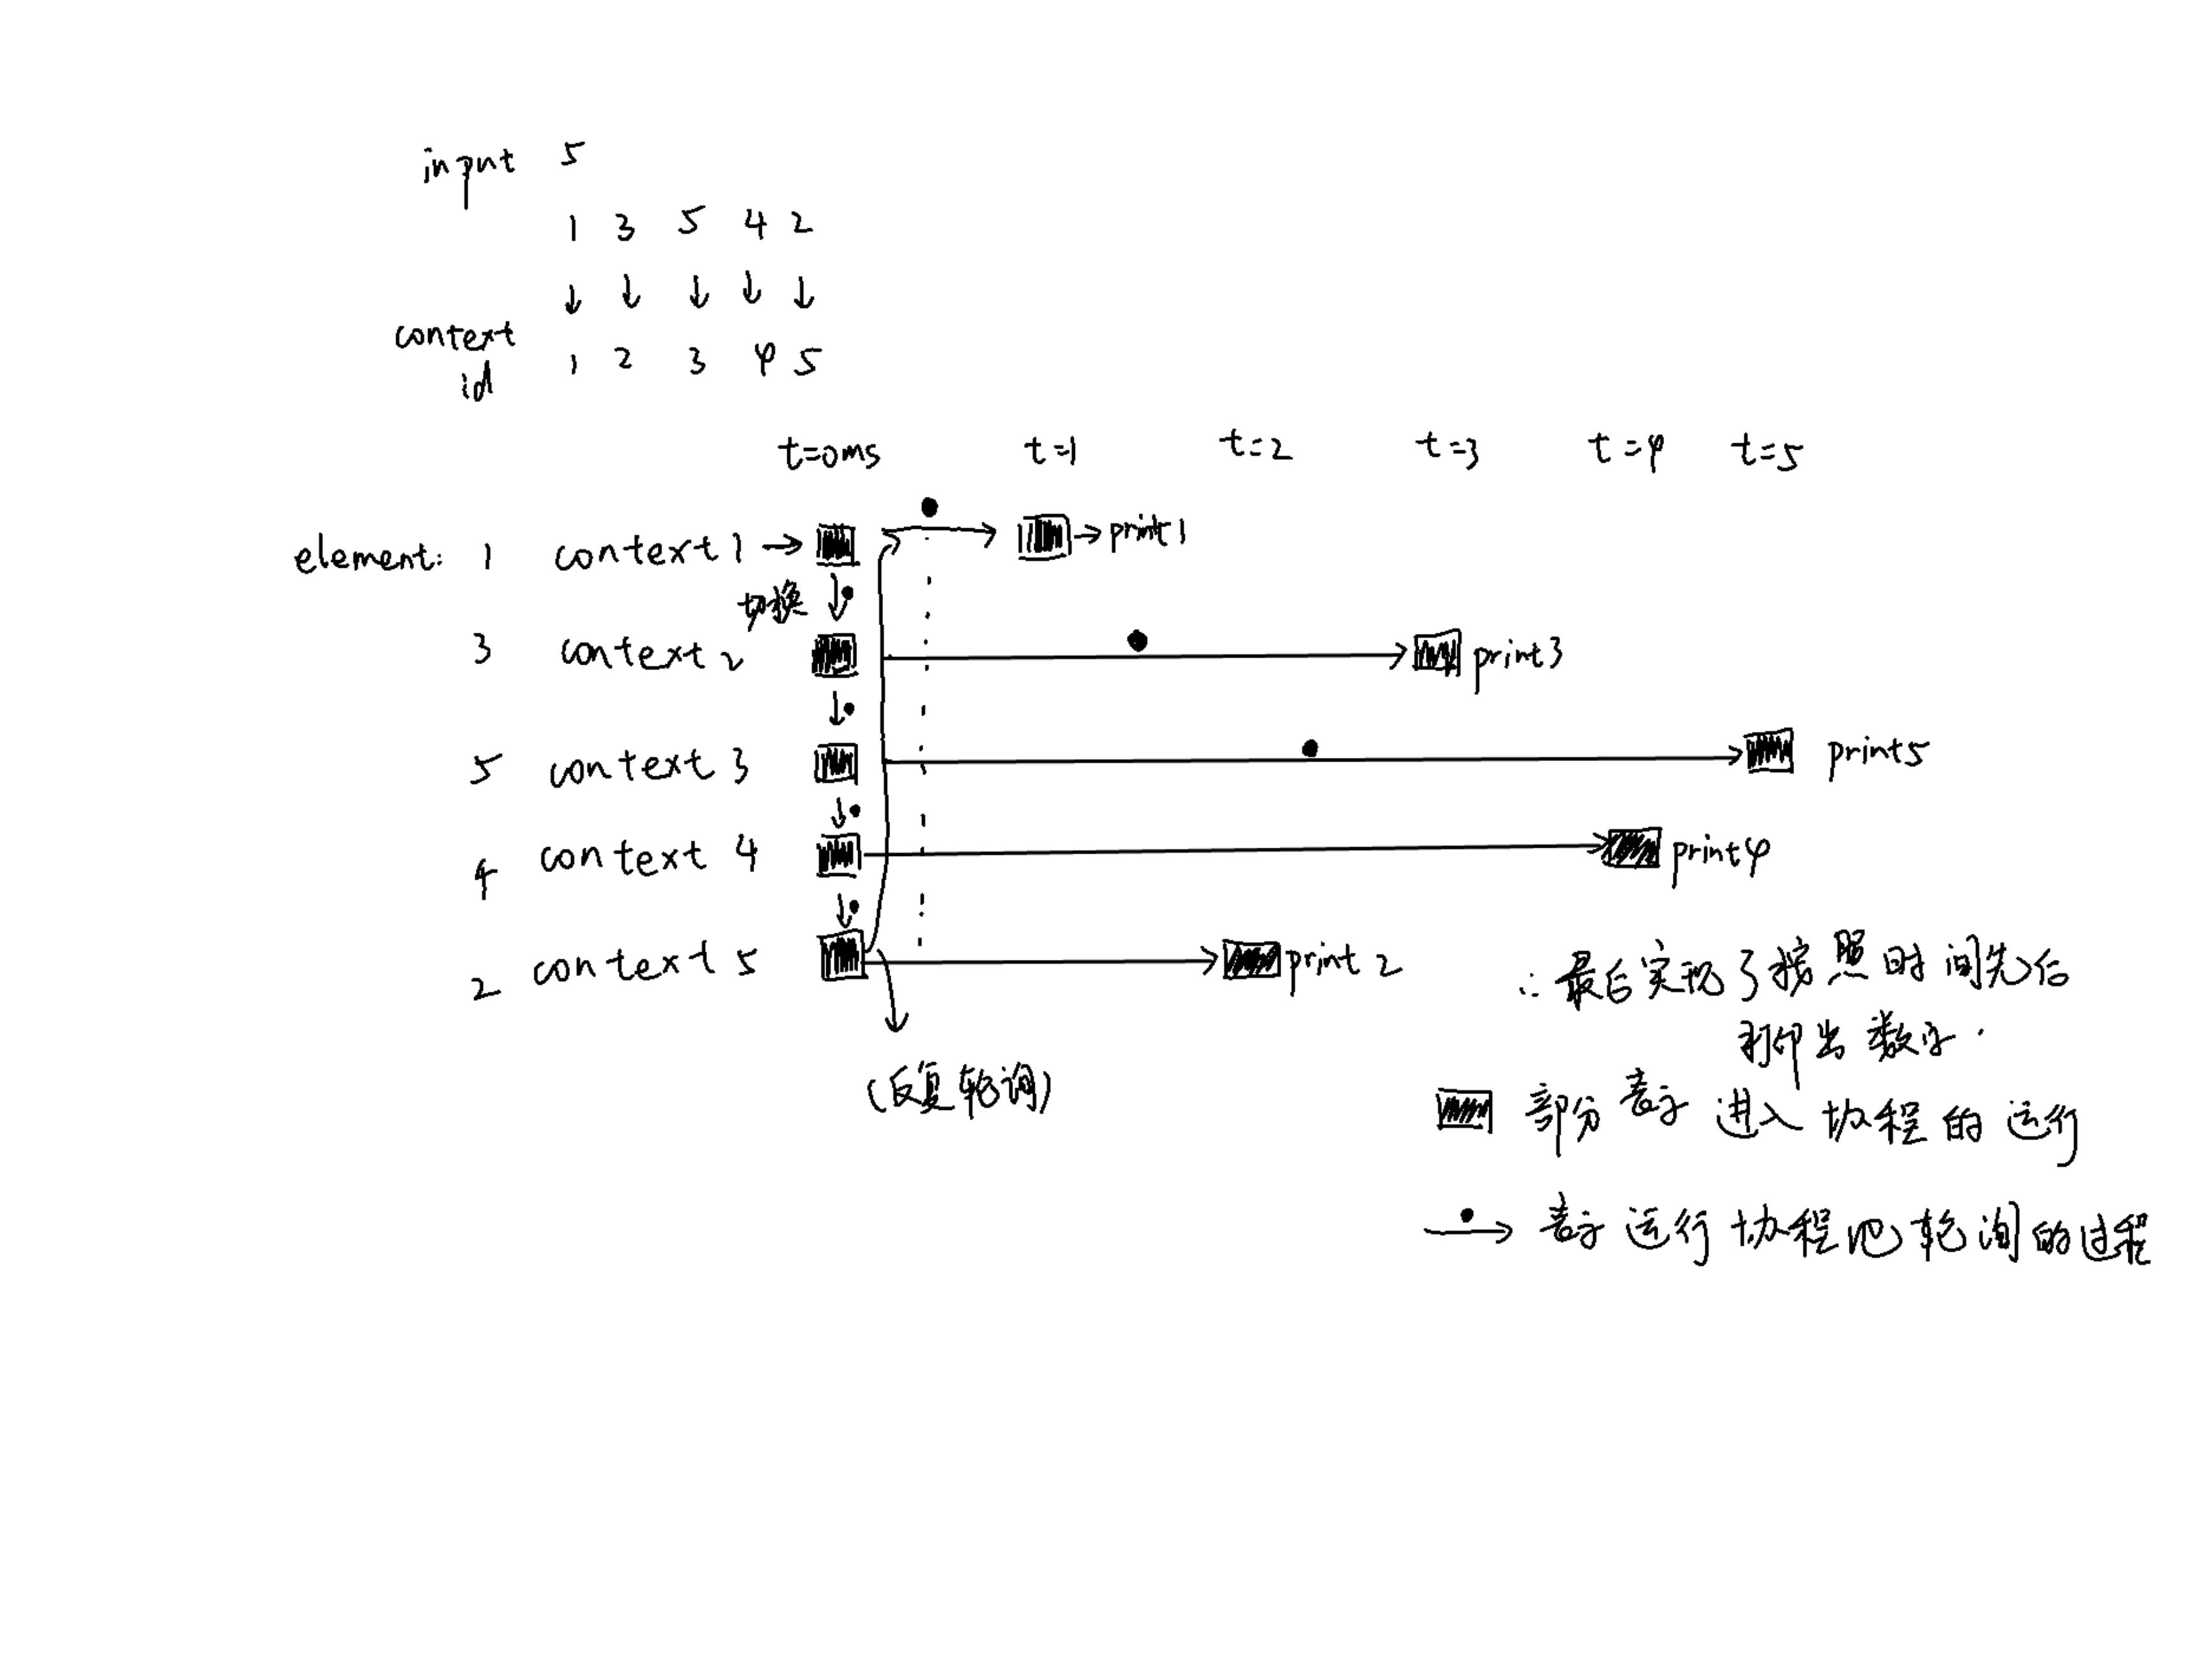 input 5
1 3 5 4 2
↓ ↓ ↓ ↓ ↓
context id 1 2 3 4 5
t=0ms t=1 t=2 t=3 t=4 t=5
element: 1 context 1 → → print1
切换
3 context 2 print3
5 context 3 print5
4 context 4 print4
2 context 5 print 2
(反复轮询)
∴ 最后实现了按照时间先后
打印出数字.
部分表示进入协程的运行
表示运行协程池轮询的过程